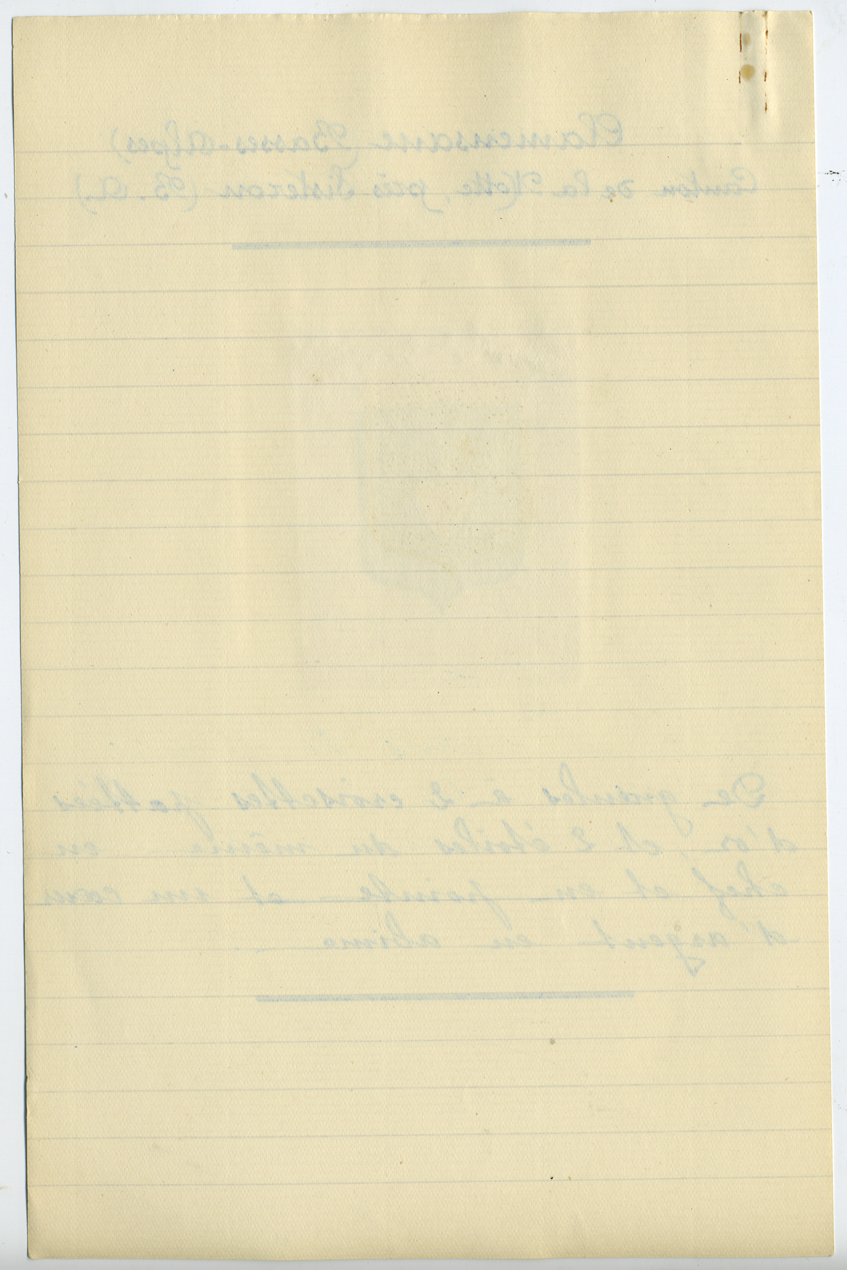 Clamensane (Basses-Alpes)
Canton de la Motte, près Sisteron (B. A.)
De gueules à 2 croisettes pattées
d'or, et 2 étoiles du même en
chef et en pointe et un cœur
d'argent en abime